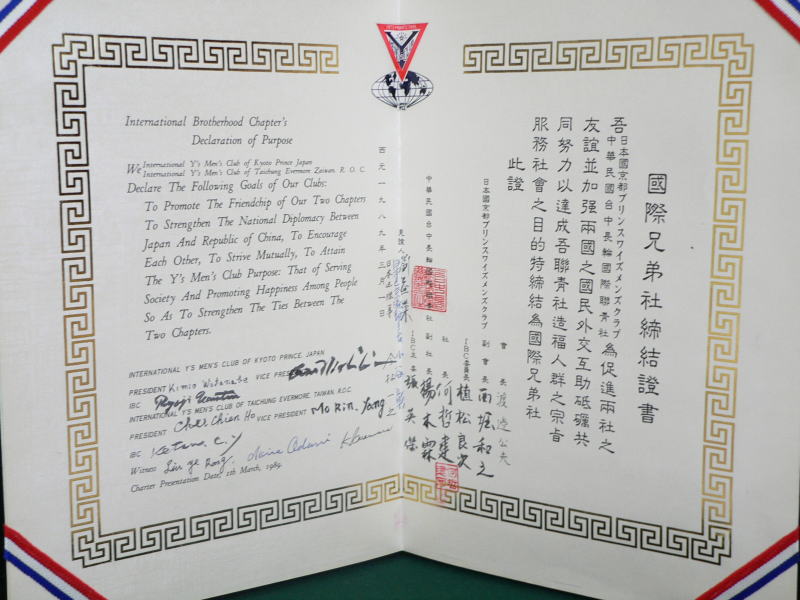 International Brotherhood Chapter's
Declaration of Purpose
We International Y's Men's Club of Kyoto Prince Japan
International Y's Men's Club of Taichung Evermore Taiwan, R. O. C.
Declare The Following Goals of Our Clubs:
To Promote The Friendship of Our Two Chapters
To Strengthen The National Diplomacy Between
Japan And Republic of China, To Encourage
Each Other, To Strive Mutually, To Attain
The Y's Men's Club Purpose: That of Serving
Society And Promoting Happiness Among People
So As To Strengthen The Ties Between The
Two Chapters.
INTERNATIONAL Y'S MEN'S CLUB OF KYOTO PRINCE, JAPAN
PRESIDENT Kimio Watanabe VICE PRESIDENT
IBC
INTERNATIONAL Y'S MEN'S CLUB OF TAICHUNG EVERMORE TAIWAN, R.O.C.
PRESIDENT Che. Chien Ho VICE PRESIDENT Mo Rin. Yang
IBC
Witness
Charter Presentation Date, 1th March, 1989
國際兄弟社締結證書
吾日本國京都プリンスワイズメンズクラブ
中華民國台中長輪國際聯青社為促進兩社之
友誼並加强兩國之國民外交互助砥礪共
同努力以達成吾聯青社造福人群之宗旨
服務社會之目的特締結為國際兄弟社
此證
日本國京都プリンスワイズメンズクラブ
會長 渡邊公夫
副會長 西堀和之
IBC委員長 植松良次
中華民國台中長輪國際聯青社
社長 何哲建
副社長 楊木霖
IBC主委 張英傑
見證人
西元一九八九年三月一日